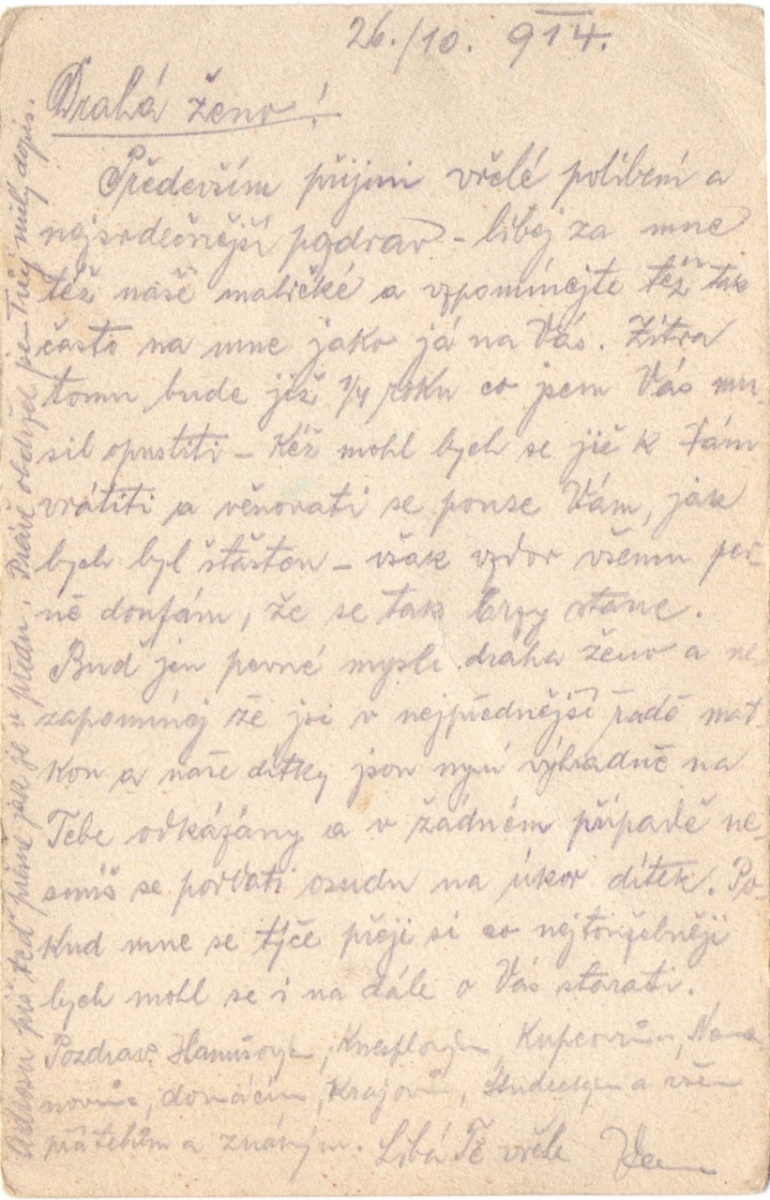 26./10. 914.
Drahá ženo!
Především přijmi vřelé políbení a
nejsrdečnější pozdrav – líbej za mne
též naše maličké a vzpomínejte též tak
často na mne jako já na Vás. Zítra
tomu bude již 1/4 roku co jsem Vás mu-
sil opustiti – Kéž mohl bych se již k Vám
vrátiti a věnovati se pouse Vám, jak
bych byl šťasten – však vzdor všemu pev-
ně doufám, že se tak brzy stane.
Buď jen pevné mysli drahá ženo a ne
zapomínej že jsi v nejpřednější řadě mat-
kou a naše dítky jsou nyní výhradně na
Tebe odkázány a v žádném případě ne-
smíš se poddati osudu na úkor dítek. Po-
kud mne se týče přeji si co nejtoužebněji
bych mohl se i na dále o Vás starati.
Pozdrav Hanušovým, Knesplovým, Kupcovům,
domácím, Krajovům, a všem
přátelům a známým. Líbá Tě vřele
Adresu piš teď přímě jak je v předu. Právě obdržel jsem Tvůj milý dopis.